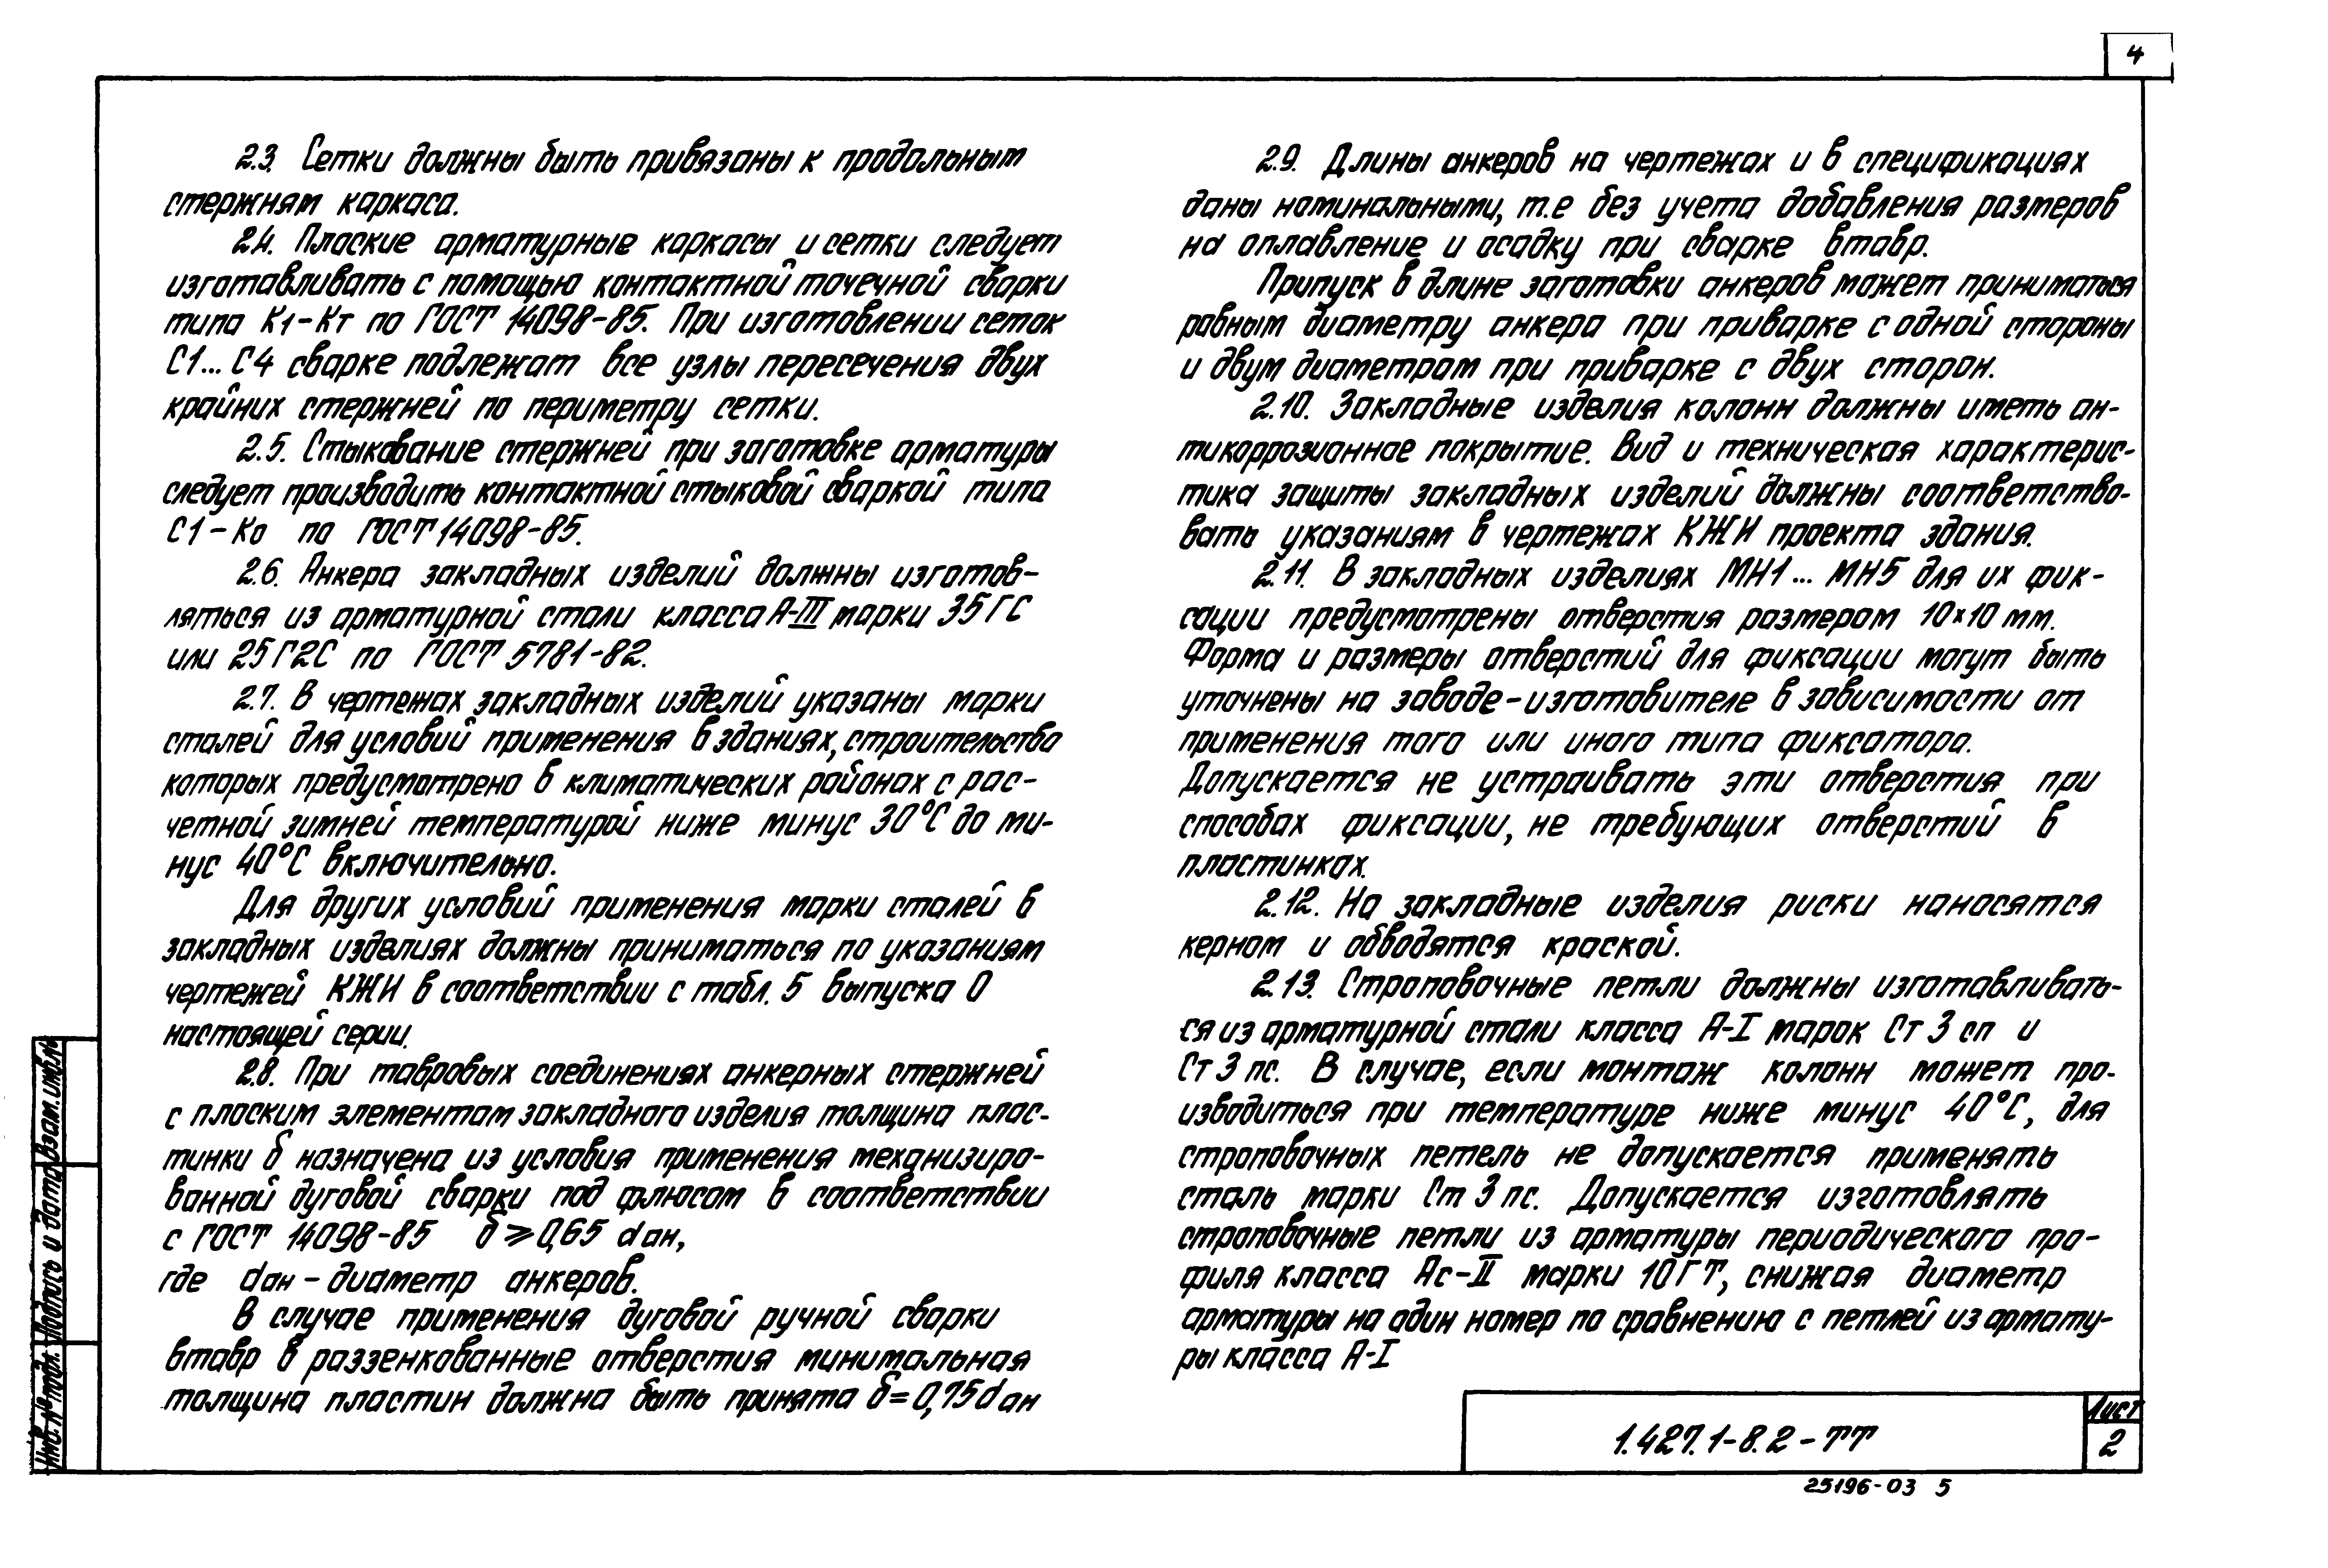 4
2.3. Сетки должны быть привязаны к продольным
стержням каркаса.
2.4. Плоские арматурные каркасы и сетки следует
изготавливать с помощью контактной точечной сварки
типа К1-Кт по ГОСТ 14098-85. При изготовлении сеток
С1...С4 сварке подлежат все узлы пересечения двух
крайних стержней по периметру сетки.
2.5. Стыкование стержней при заготовке арматуры
следует производить контактной стыковой сваркой типа
С1-Ко по ГОСТ 14098-85.
2.6. Анкера закладных изделий должны изготов-
ляться из арматурной стали класса А-III марки 35ГС
или 25Г2С по ГОСТ 5781-82.
2.7. В чертежах закладных изделий указаны марки
сталей для условий применения в зданиях, строительство
которых предусмотрено в климатических районах с рас-
четной зимней температурой ниже минус 30°С до ми-
нус 40°С включительно.
Для других условий применения марки сталей в
закладных изделиях должны приниматься по указаниям
чертежей КЖИ в соответствии с табл. 5 выпуска 0
настоящей серии.
2.8. При тавровых соединениях анкерных стержней
с плоским элементам закладного изделия толщина плас-
тинки δ назначена из условия применения механизиро-
ванной дуговой сварки под флюсом в соответствии
с ГОСТ 14098-85 δ ⩾ 0,65 dан,
где dан - диаметр анкеров.
В случае применения дуговой ручной сварки
втавр в раззенкованные отверстия минимальная
толщина пластин должна быть принята δ = 0,75dан
2.9. Длины анкеров на чертежах и в спецификациях
даны номинальными, т.е без учета добавления размеров
на оплавление и осадку при сварке втавр.
Припуск в длине заготовки анкеров может приниматься
равным диаметру анкера при приварке с одной стороны
и двум диаметрам при приварке с двух сторон.
2.10. Закладные изделия колонн должны иметь ан-
тикоррозионное покрытие. Вид и техническая характерис-
тика защиты закладных изделий должны соответство-
вать указаниям в чертежах КЖИ проекта здания.
2.11. В закладных изделиях МН1... МН5 для их фик-
сации предусмотрены отверстия размером 10х10 мм.
Форма и размеры отверстий для фиксации могут быть
уточнены на заводе-изготовителе в зависимости от
применения того или иного типа фиксатора.
Допускается не устраивать эти отверстия при
способах фиксации, не требующих отверстий в
пластинках.
2.12. На закладные изделия риски наносятся
керном и обводятся краской.
2.13. Строповочные петли должны изготавливать-
ся из арматурной стали класса А-I марок Ст 3 сп и
Ст 3 пс. В случае, если монтаж колонн может про-
изводиться при температуре ниже минус 40°С, для
строповочных петель не допускается применять
сталь марки Ст 3 пс. Допускается изготовлять
строповочные петли из арматуры периодического про-
филя класса Ас-II марки 10ГТ, снижая диаметр
арматуры на один номер по сравнению с петлей из армату-
ры класса А-I
Инв. № подл.
Подпись и дата
Взам. инв. №
1.427.1-8.2-ТТ
Лист
2
25196-03 5